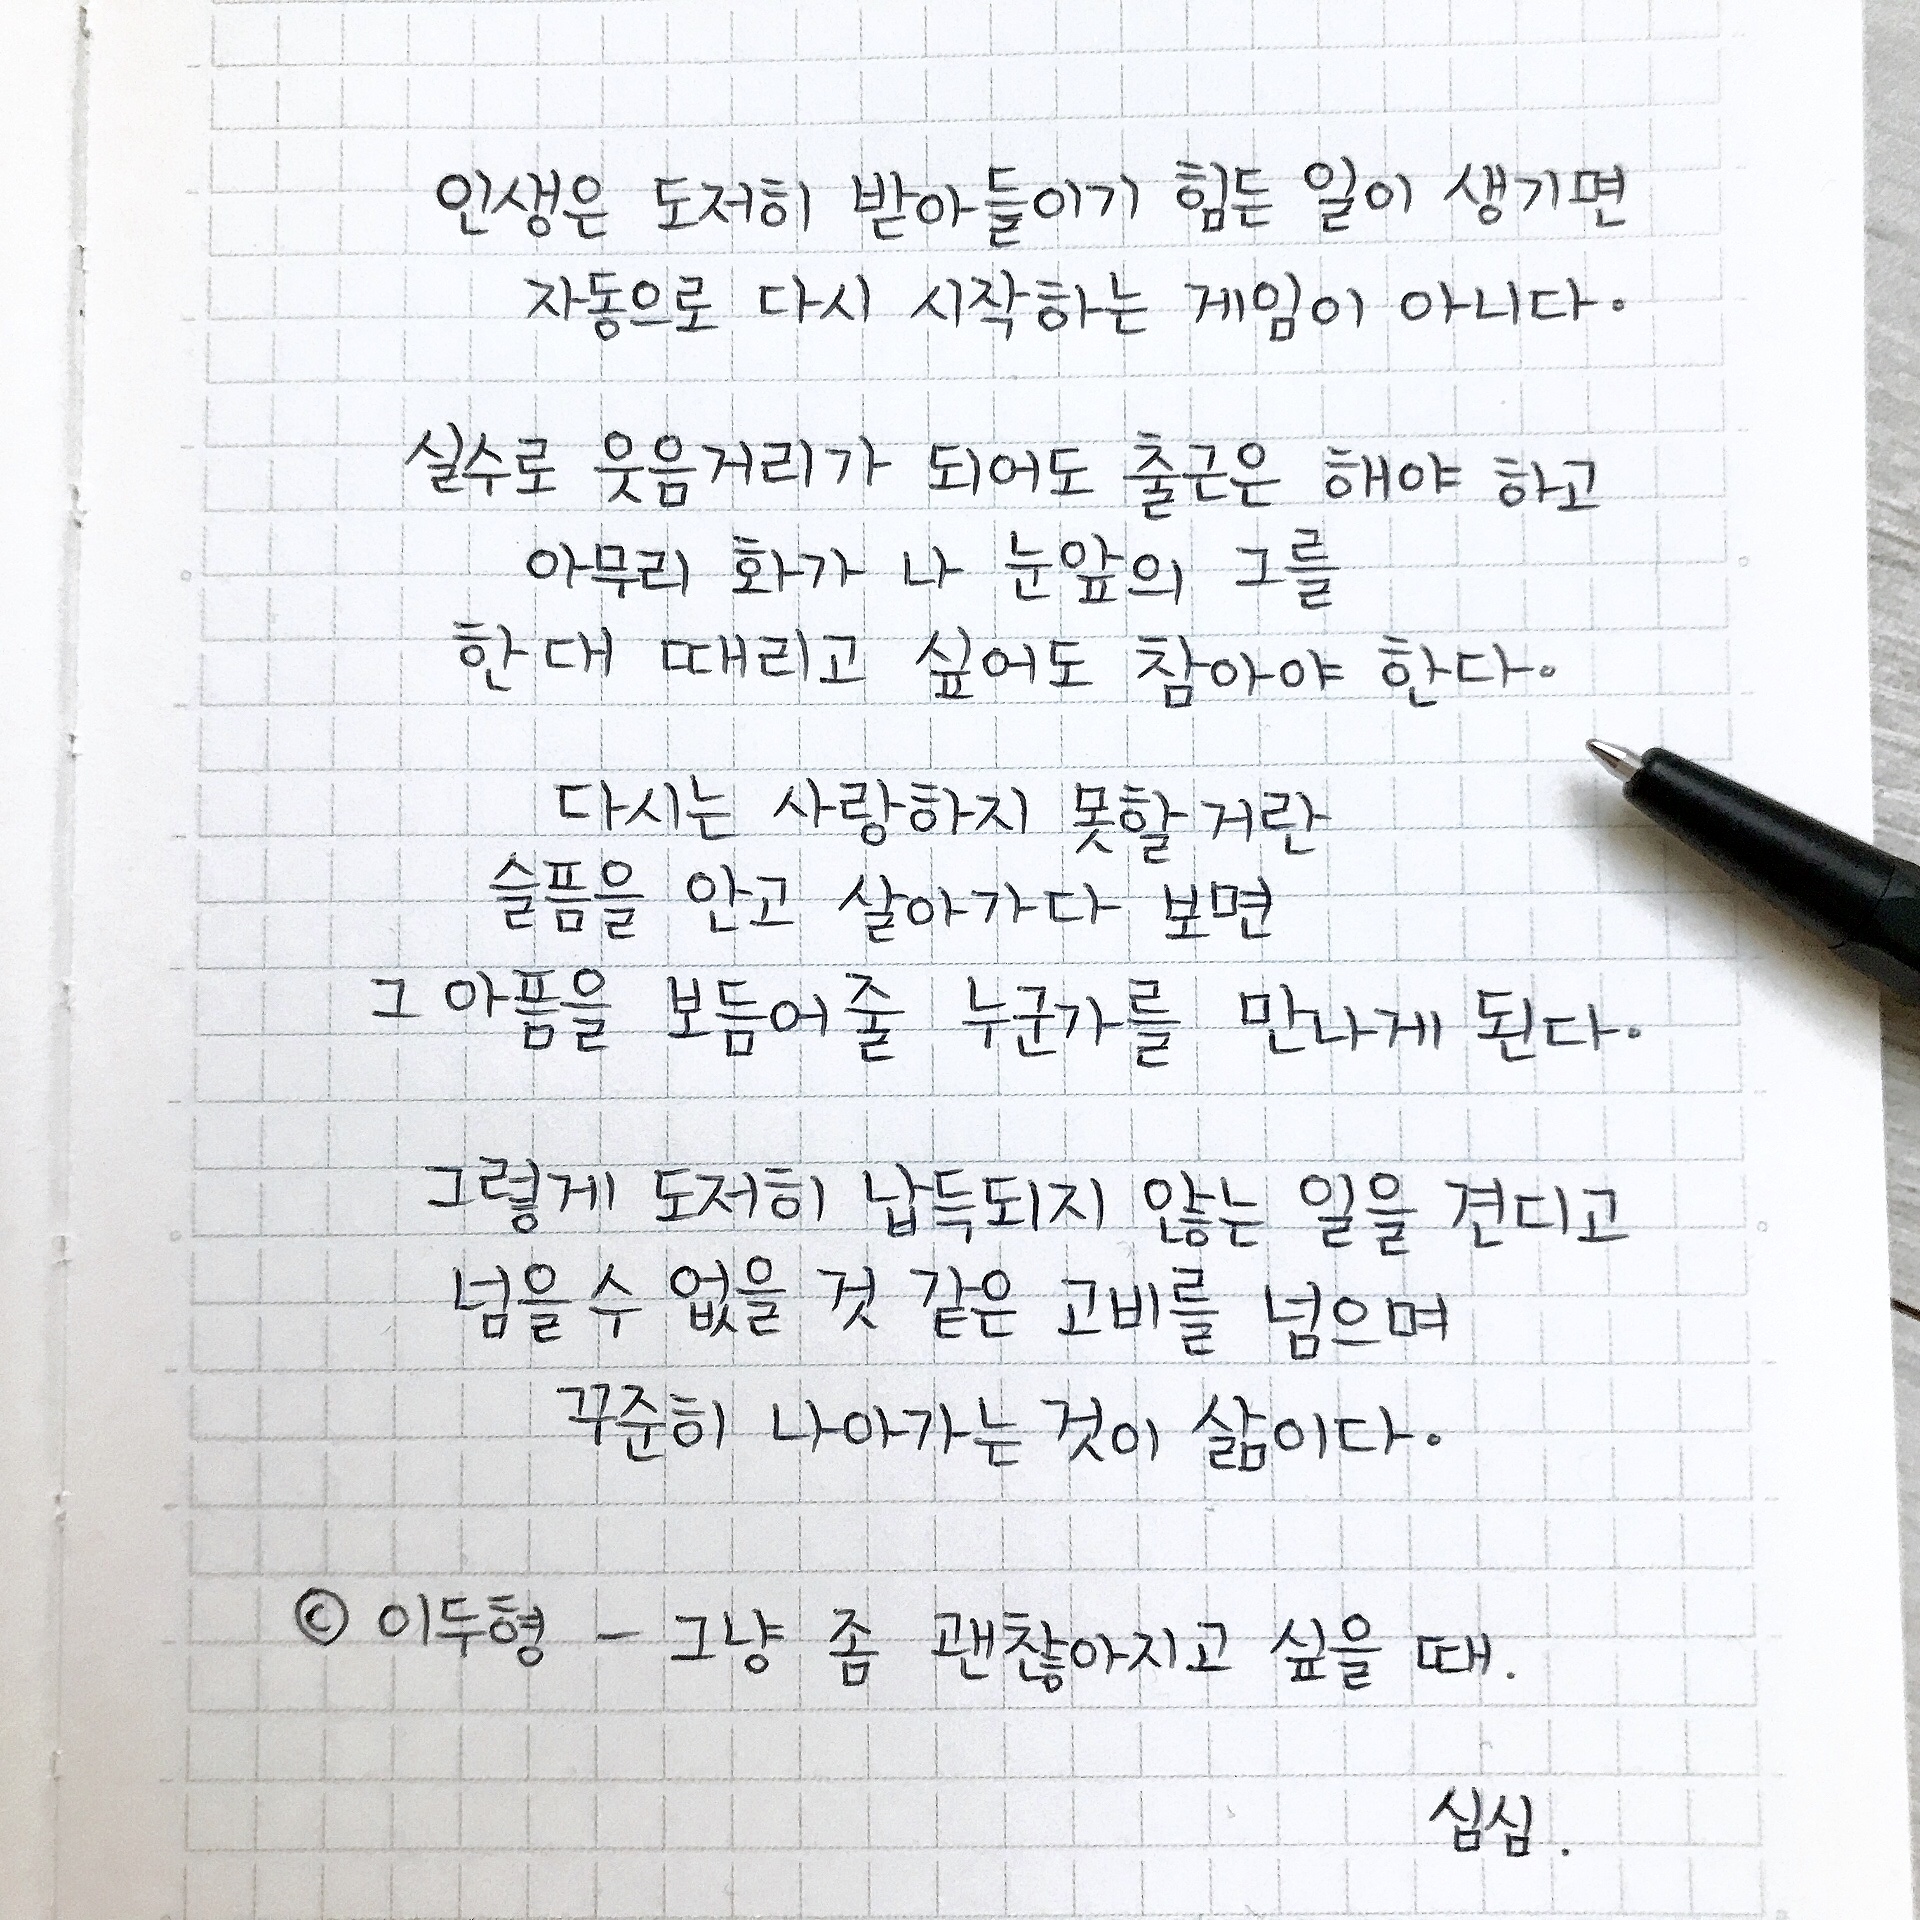 인생은 도저히 받아들이기 힘든 일이 생기면
자동으로 다시 시작하는 게임이 아니다.
실수로 웃음거리가 되어도 출근은 해야 하고
아무리 화가 나 눈앞의 그를
한 대 때리고 싶어도 참아야 한다.
다시는 사랑하지 못할 거란
슬픔을 안고 살아가다 보면
그 아픔을 보듬어 줄 누군가를 만나게 된다.
그렇게 도저히 납득되지 않는 일을 견디고
넘을 수 없을 것 같은 고비를 넘으며
꾸준히 나아가는 것이 삶이다.
© 이두형 - 그냥 좀 괜찮아지고 싶을 때.
심심.